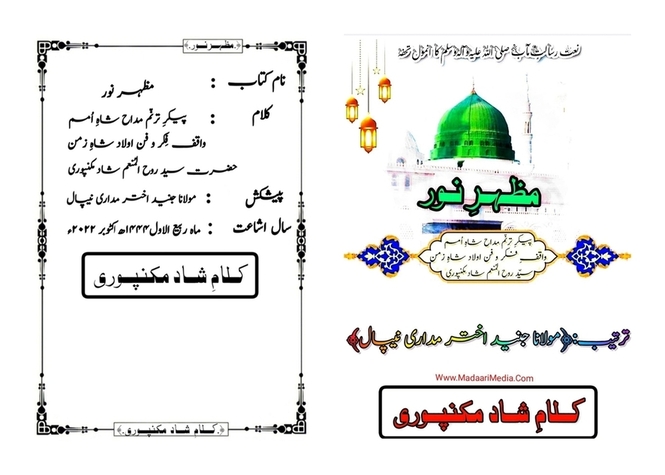 نعت رسالت مآب صلی اللہ علیہ وآلہ وسلم کا انمول تحفہ
مظہرِ نور
پیکرِ ترنّم مداح شاہِ اُمم
واقفِ فکر و فن اولاد شاہِ زمن
سیّد روح المنعم شاد مکنپوری
ترتیب:﴿مولانا جنید اختر مداری نیپال﴾
Www.MadaariMedia.Com
کلامِ شاد مکنپوری
﴿مظہرِ نور﴾
نام کتاب : مظہر نور
کلام : پیکرِ ترنّم مداح شاہِ اُمم
واقف فکر و فن اولاد شاہِ زمن
حضرت سید روح المنعم شاد مکنپوری
پیشکش : مولانا جنید اختر مداری نیپال
سال اشاعت : ماہ ربیع الاول ۱۴۴۴ھ اکتوبر ۲۰۲۲ء
کلامِ شاد مکنپوری
﴿کلامِ شاد مکنپوری﴾